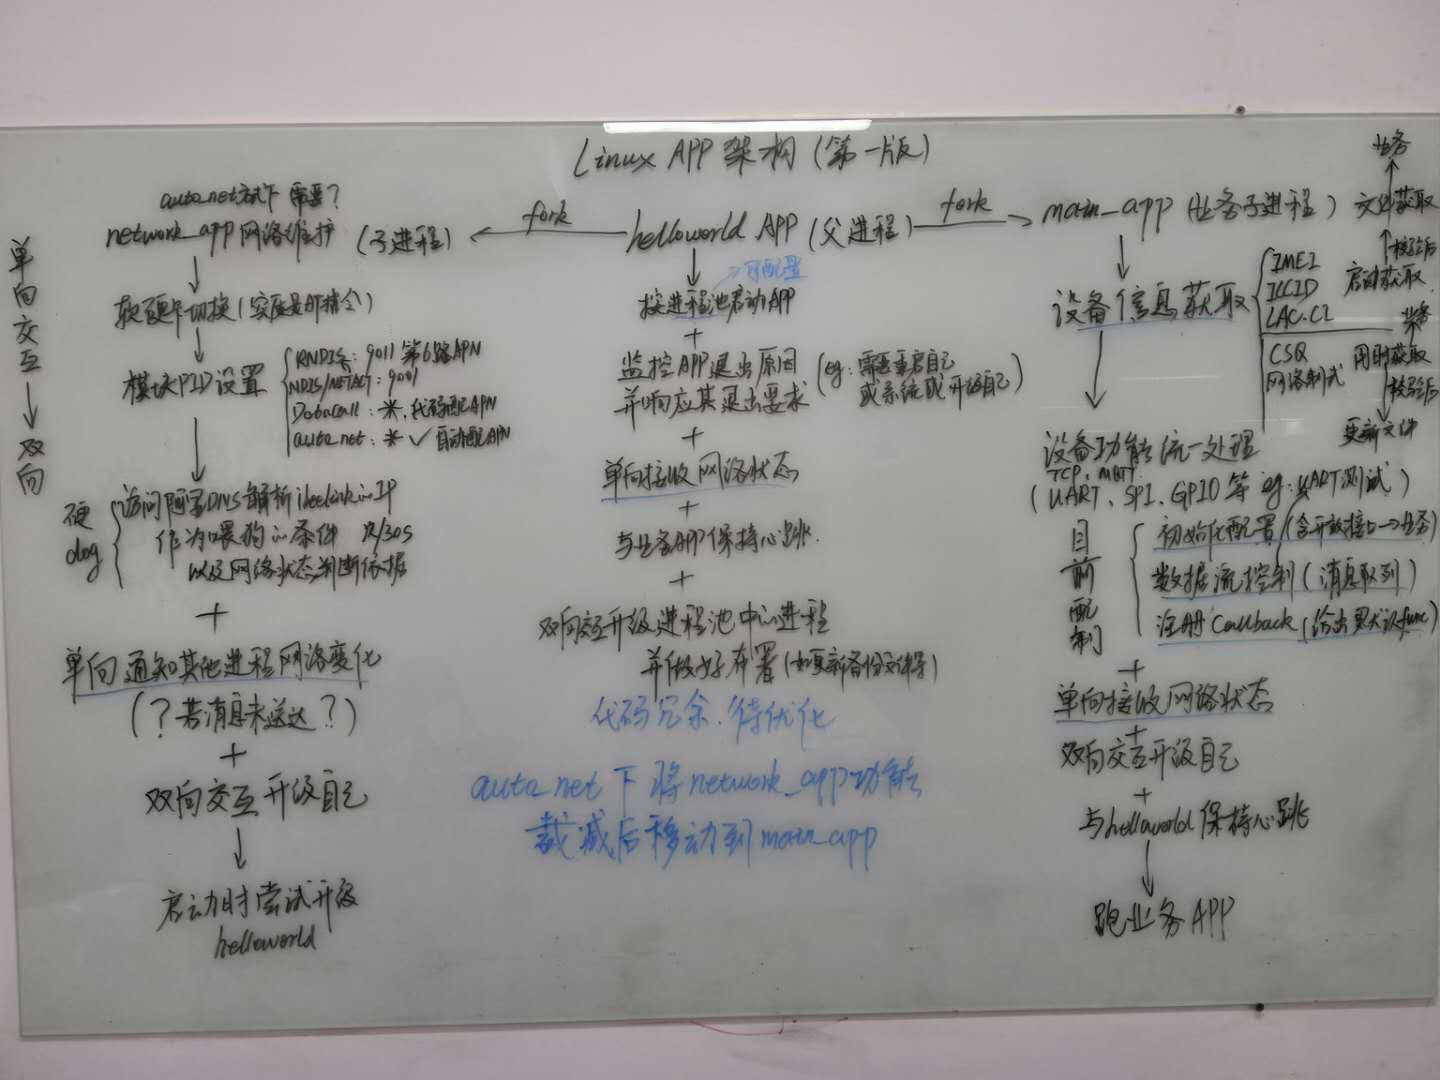 Linux APP 架构(第一版)
单向交互→双向
auto_net模式下 需要?
network_app网络维护 (子进程)
软硬卡切换(实际是AT指令)
模块PID设置
RNDIS: 9011 第6路APN
NDIS/NETACT: 9001
Datacall: *, 代码配APN
auto_net: * ✓ 自动配APN
硬dog
访问阿里DNS解析 的IP
作为喂狗的条件 次/30S
以及网络状态判断依据
+
单向通知其他进程网络变化
(?若消息未送达?)
+
双向交互升级自己
启动时尝试升级
helloworld
fork
helloworld APP (父进程)
fork
→可配置
按进程池启动APP
+
监控APP退出原因
并响应其退出要求
(eg: 需要重启自己
或系统或升级自己)
+
单向接收网络状态
+
与业务APP保持心跳.
+
双向交互升级进程池中心进程
并做好布署(如更新备份文件等)
代码冗余.待优化
auto_net下将network_app功能
裁减后移动到main_app
main_app (业务子进程)
设备信息获取
IMEI
ICCID
LAC.CI
CSQ
网络制式
业务
文件获取
校验后
启动获取
业务
用时获取
校验后
更新文件
设备功能统一处理
TCP、MQTT
(UART、SPI、GPIO等 eg: UART测试)
目前配制
初始化配置(含开放接口→业务)
数据流控制(消息队列)
注册Callback(给出默认func)
+
单向接收网络状态
+
双向交互升级自己
+
与helloworld保持心跳
跑业务APP